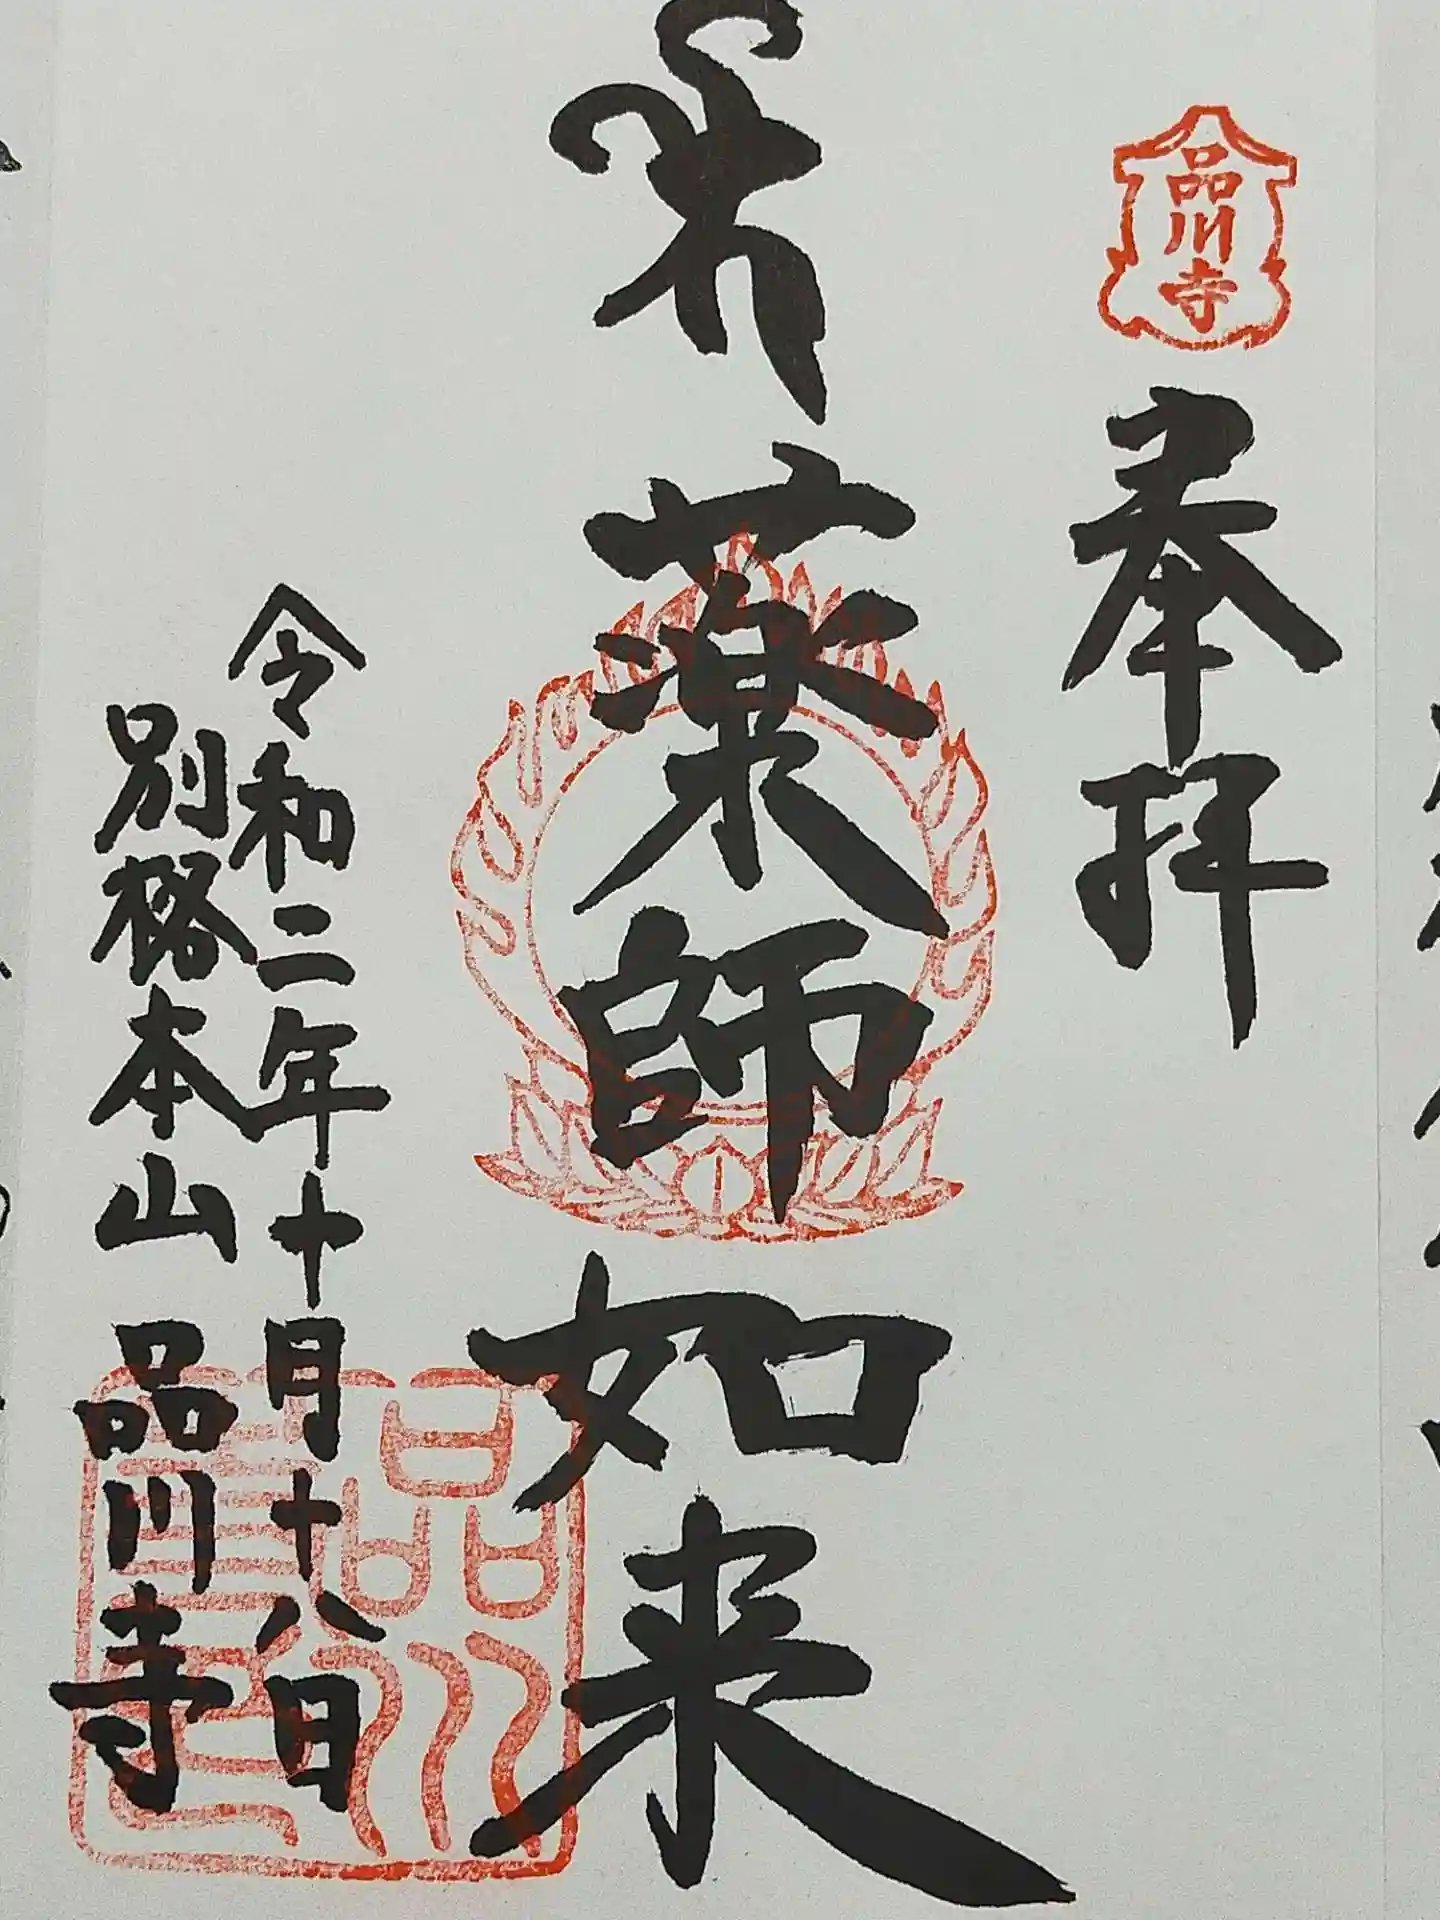 品川寺
奉拝
薬師如来
令和二年十月十八日
別格本山 品川寺